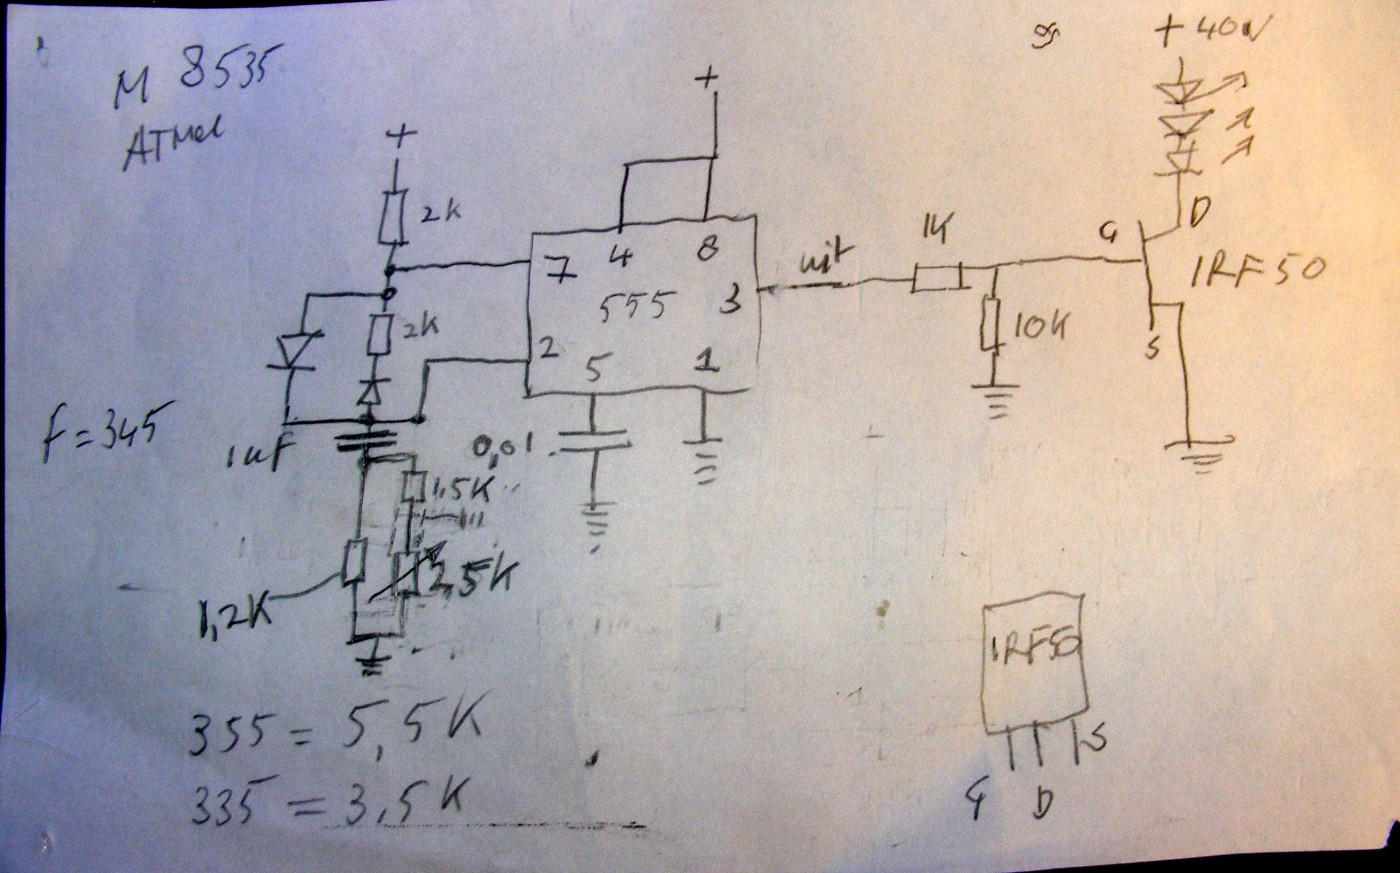 M 8535
ATMel
+
2K
+
7
4
8
555
3
2
5
1
2K
uit
1K
10K
+ 40V
D
G
IRF50
S
f=345
1uF
0,01
1,5K
2,5K
1,2K
355 = 5,5K
335 = 3,5K
IRF50
G
D
S